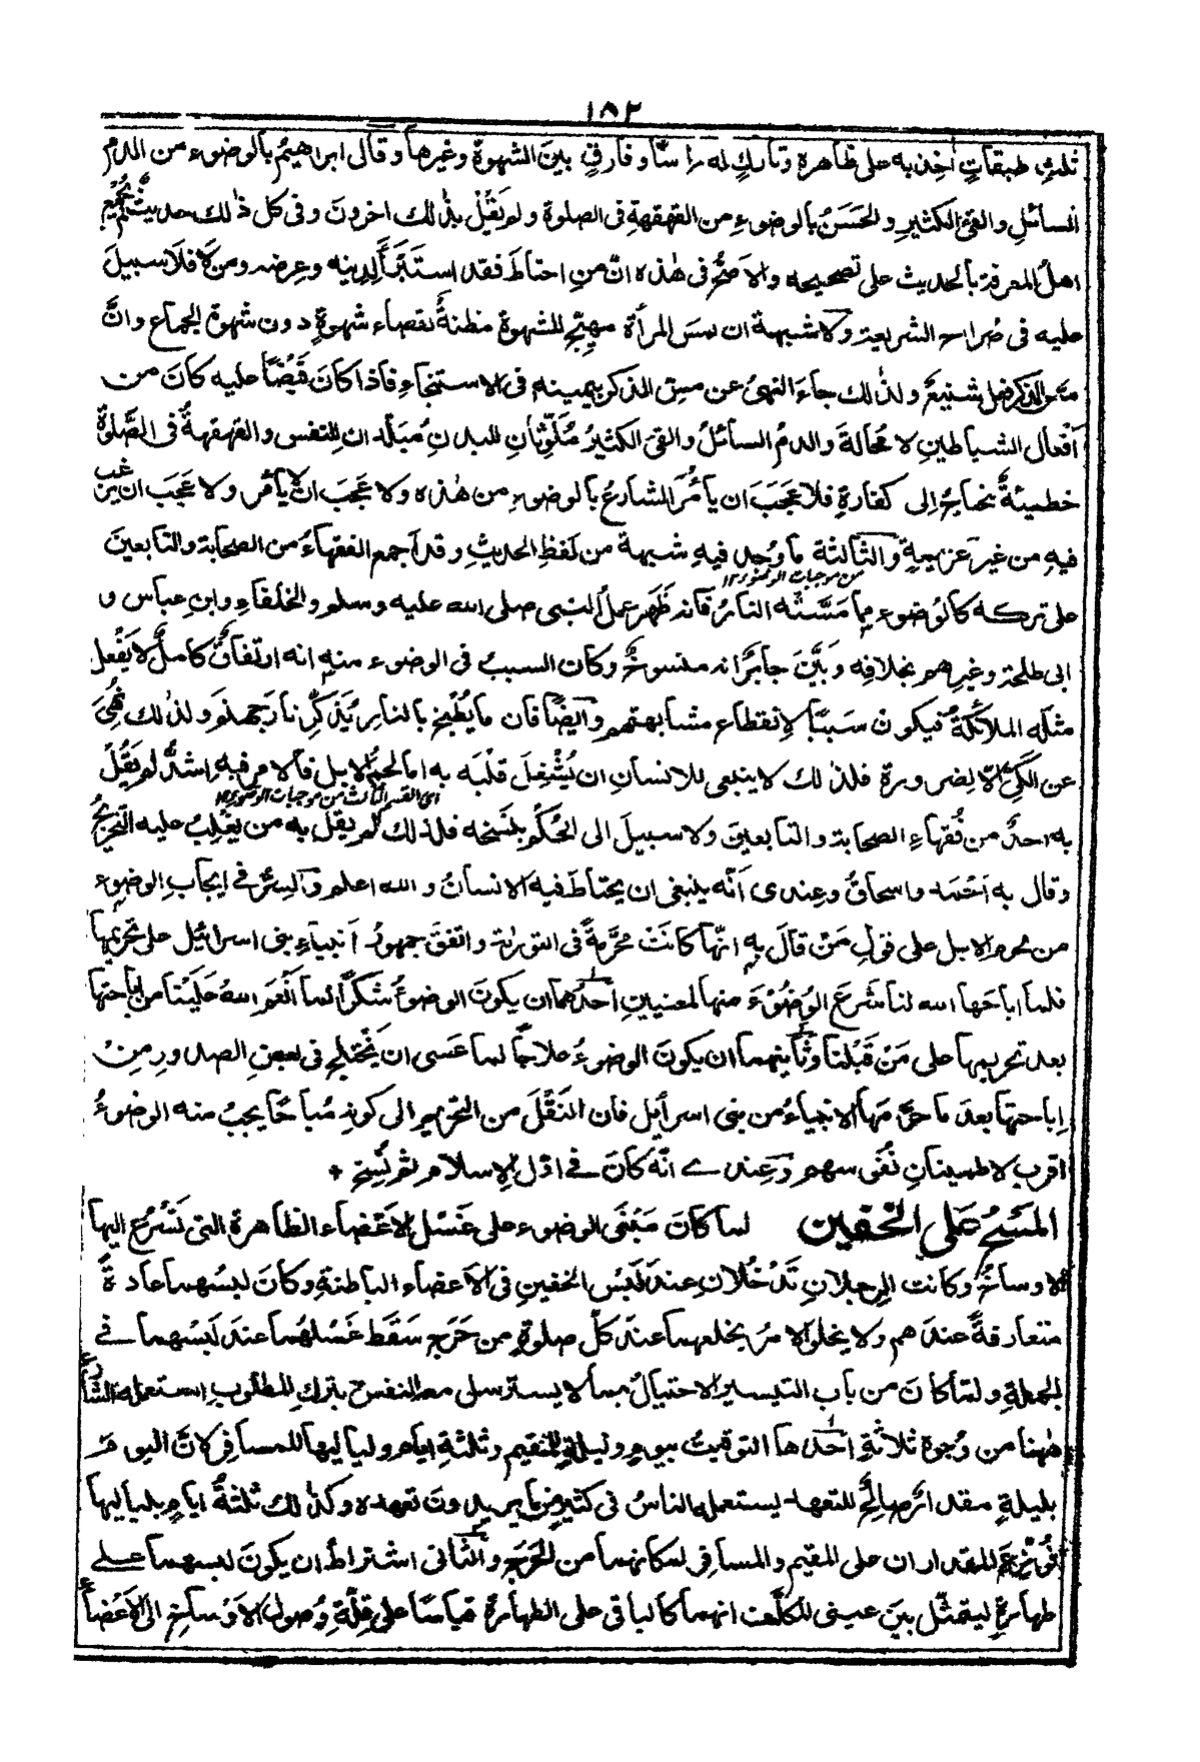 ١٨٢
ثلثِ طبقاتٍ اٰخِذ به على ظاهره وتاركٍ له راسًا وفارقٍ بين الشهوة وغيرها وقال ابراهيمُ بالوضوء من الدم
السائلِ والقئ الكثيرِ والحَسَنُ بالوضوءِ من القهقهةِ فى الصلوة ولم يَقُلْ بذٰلك اٰخرون وفى كل ذٰلك حديثٌ لم يُجْمِع
اهلُ المعرفة بالحديث على تصحيحه والاصحُّ فى هٰذه انّ من احتاطَ فقد استَبْرَأَ لدينه وعِرضه ومن لا فلا سبيلَ
عليه فى صُراحِ الشريعة ولا شبهة ان لمسَ المرأة مهيّجٌ للشهوة مظنةُ لقضاء شهوةٍ دون شهوة الجماع وانَّ
مسَّ الذكر فعل شنيعٌ ولذٰلك جاءَ النهىُ عن مسّ الذكر بيمينه فى الاستنجاءِ فاذا كان قَبْضًا عليه كانَ من
اَفْعال الشياطينِ لا مُحالةَ والدمُ السائلُ والقئ الكثيرُ مُلَوِّثانِ للبدنِ مُبَلِّدانِ للنفس والقهقهةُ فى الصَّلوٰةِ
خطيئةٌ تحتاجُ الى كفارةٍ فلا عَجَبَ ان يأمُرَ الشارعُ بالوضوءِ من هٰذه ولا عَجَبَ ان لا يأمُر ولا عَجَبَ ان يُرَغِّبَ
فيهِ من غير عزيمةٍ والثالثة ما وُجِد فيهِ شبهة من لَفظِ الحديثِ وقد اَجمع الفقهاءُ من الصحابة والتابعينَ
من موجبات الوضوء ١٢
على تركه كالوُضوءِ مما مَسَّتْه النارُ فانه ظَهَر عملُ النبى صلى الله عليه وسلم والخلفاءِ وابنِ عباس و
ابى طلحة وغيرِهم بخلافِه وبَيَّنَ جابرٌ انه منسوخٌ وكان السببُ فى الوضوء منه انه ارتفاقٌ كاملٌ لا يَفْعل
مثلَه الملائكةُ فيكون سَبَبًا لانقطاع مشابهتهم وايضًا فان ما يُطْبَخُ بالنارِ يُذَكِّرُ نارَ جهنَّمَ ولذٰلك نُهِىَ
عن الكَىِّ اِلّا لِضرورة فلذٰلك لا ينبغى للانسانِ ان يُشْغِلَ قلْبَه به اما لحمُ الابل فالامر فيهِ اشدُّ لم يَقُلْ
اى القسم الثالث من موجبات الوضوء ١٢
به احدٌ من فُقهاءِ الصحابة والتابعين ولا سبيلَ الى الحُكْمِ بنسْخه فلذٰلك لم يقل به من يَغْلِبُ عليه التخريجُ
وقال به اَحْمَد واسحاقُ وعندى اَنّه ينبغى ان يحتاطَ فيه الانسانُ والله اعلم والسِرُّ فى ايجابِ الوضوءِ
من لحوم الابل على قولِ مَنْ قالَ بهِ انّها كانَتْ مُحَرَّمةً فى التورٰىة واتفقَ جمهورُ انبياءِ بنى اسرائيل على تحريمها
فلما اباحَها الله لنا شَرَعَ الوُضوْءَ منها لمعنيينِ اَحدُهما ان يكونَ الوضوءُ شكرًا لما اَنْعَمَ اللهُ عَلَيْنا من اباحتها
بعد تحريمها على مَنْ قَبْلَنا وثانيهما ان يكونَ الوضوءُ علاجًا لما عَسى ان يَختلجَ فى بعضِ الصدورِ مِنْ
اِباحتِها بعدَ ما حَرَّمَها الانبياءُ من بنى اسرائيل فان النَقْلَ من التحريمِ الى كونِه مُباحًا يجبُ منه الوضوءُ
اقرب لاطمينانِ نُفوسهم وعندى انّه كانَ فى اوّل الاسلام ثم نُسِخَ ٭
المَسْحُ عَلى الخفين لما كانَ مَبْنَى الوضوء على غَسْل الاَعْضاء الظاهرة التى تَسْرُع اليها
الاوساخُ وكانت الرِجلانِ تَدْخُلانِ عندَ لُبْسِ الخفينِ فى الاَعضاء الباطنةِ وكانَ لُبسُهما عادةً
متعارفةً عندَهم ولا يخلو الامرُ بخلعهما عندَ كلّ صلوٰةٍ من حَرَجٍ سَقَطَ غَسْلهُما عندَ لُبسِهما فى
الجملةِ ولمّا كانَ من باب التيسيرِ الاحتيالُ بما لا يسترسل معه النفسُ بتركِ المطلوبِ استعمله الشارع
هٰهنا من وُجوهٍ ثلاثةٍ اَحدُها التوقيتُ بيومٍ وليلةٍ للمقيم وثلثةِ ايامٍ ولياليها للمسافر لانّ اليومَ
بليلةٍ مقدارٌ صالحٌ للتعهد يستعمله الناسُ فى كثيرٍ مما يريدون تعهده وكذٰلك ثلثةُ ايامٍ بلياليها
فوُزِّعَ المقداران على المقيم والمسافر لمكانهما من الحَرَج والثانى اشتراطُ ان يكونَ لبسهما على
طهارةٍ ليتمثّل بينَ عينى المكلّف انهما كالباقى على الطهارة قياسًا على قلّةِ وُصولِ الاَوْساخِ الى الاَعْضاءِ